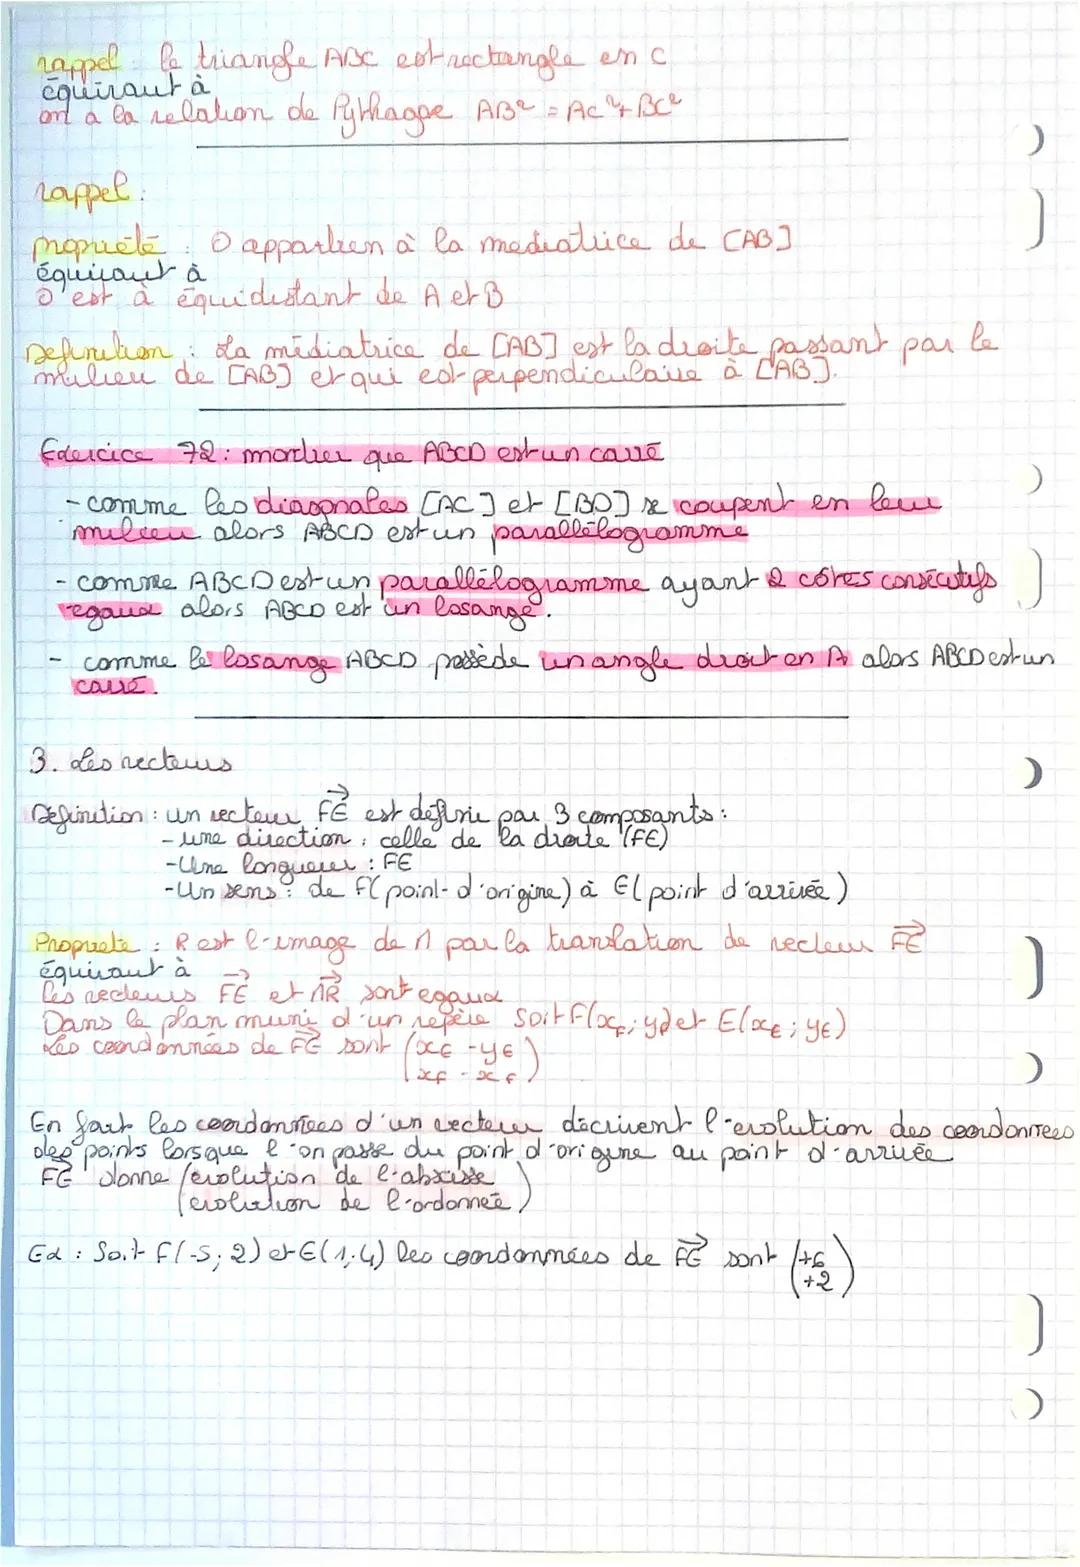 rappel : le triangle ABC est rectangle en C
équivaut à
on a la relation de Pythagge AB² = AC² + BC²
rappel :
propriété : O appartien à la mediatrice de [AB]
équivaut à
O est à équidistant de A et B
Definition : La médiatrice de [AB] est la droite passant par le
milieu de [AB] et qui est perpendiculaire à [AB].
Exercice 72 : montrer que ABCD est un carré
- comme les diagonales [AC] et [BD] se coupent en leur
milieu alors ABCD est un parallélogramme
- comme ABCD est un parallélogramme ayant 2 côtés consécutifs
egaux alors ABCD est un losange.
- comme le losange ABCD possède un angle droit en A alors ABCD est un
carré.
3. Les vecteurs
Définition : un vecteur FE est définie par 3 composants :
- une direction : celle de la droite (FE)
- Une longueur : FE
- Un sens : de F (point d'origine) à E (point d'arrivée)
Propriete : R est l'image de N par la translation de vecteur FE
équivaut à
les vecteurs FE et NR sont egaux
Dans le plan muni d'un repère soit F(xF ; yF) et E(xE ; yE)
Les coordonnées de FE sont (xE - yE
xF - xF)
En fait les coordonnées d'un vecteur décrivent l'evolution des coordonnees
des points lorsque l'on passe du point d'origine au point d'arrivée
FE donne (evolution de l'abscisse
evolution de l'ordonneé)
Ex : Soit F(-5 ; 2) et E(1 ; 4) les coordonnées de FE sont (+6
+2)